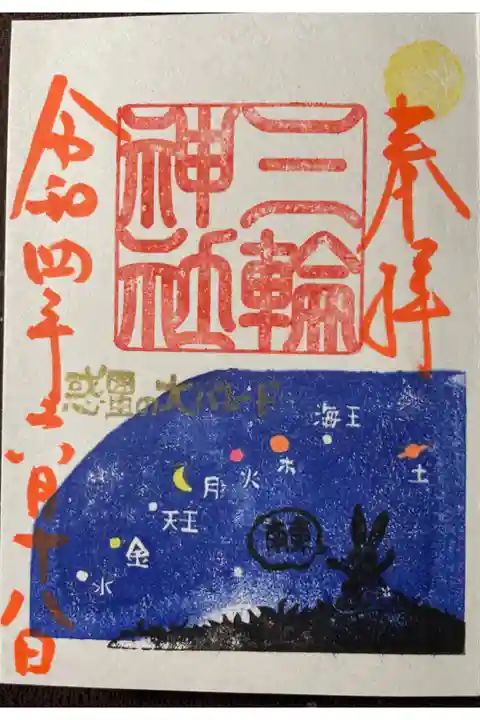 奉拝
三輪
神社
令和四年六月十八日
惑星の大パレード
海王
土
木
火
月
天王
金
水
東